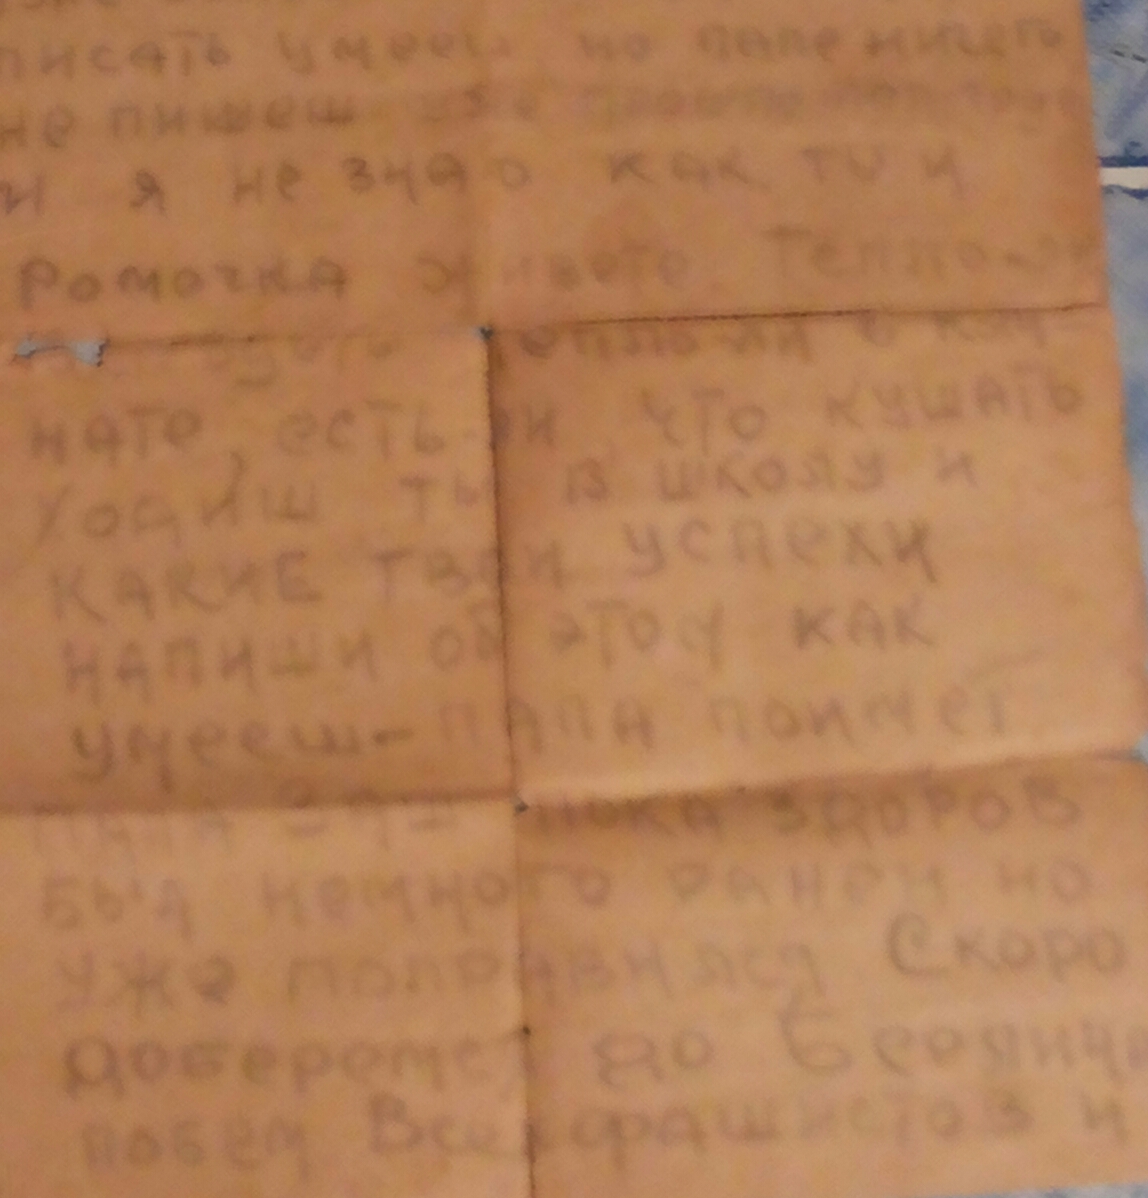 писать умееш но папе ничего
не пишеш
и я не знаю как ты и
Ромочка живете. Тепло-ли
тепло ли в ком
нате есть-ли что кушать
ходиш ты в школу и
КАКИЕ твои успехи
напиши об этом как
умееш- папа поймет
папа - я - пока здоров
был немного ранен но
уже поправился Скоро
доберемся до Берлина
побем Всех фашистов и